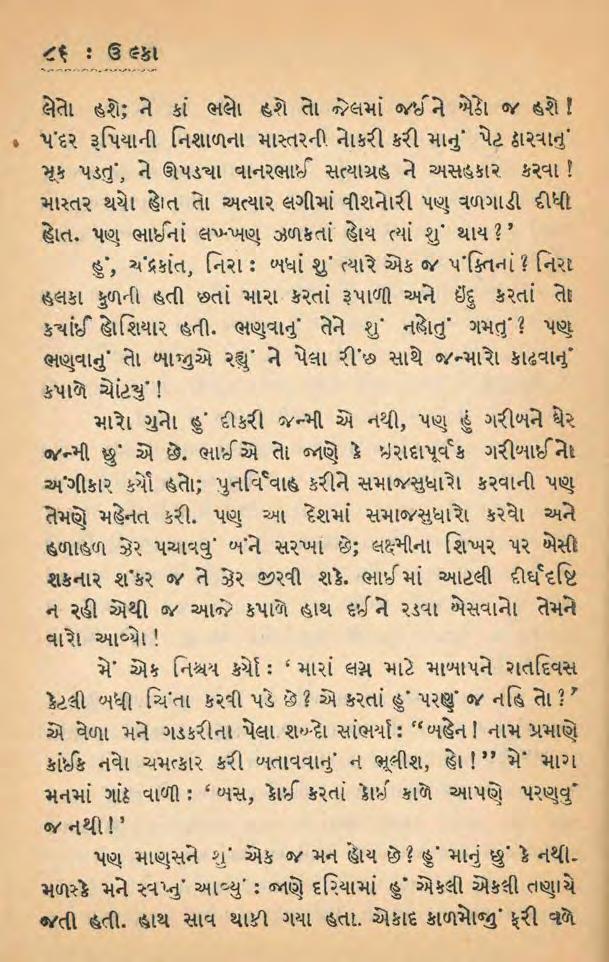 ૮૬ : ઉલ્કા
લેતો હશે; ને કાં ભલો હશે તો જેલમાં જઈને બેઠો જ હશે !
પંદર રૂપિયાની નિશાળના માસ્તરની નોકરી કરી માનું પેટ ઠારવાનું
મૂક પડતું, ને ઊપડ્યા વાનરભાઈ સત્યાગ્રહ ને અસહકાર કરવા !
માસ્તર થયો હોત તો અત્યાર લગીમાં વીશનોરી પણ વળગાડી દીધી
હોત. પણ ભાઈનાં લખ્ખણ ઝળકતાં હોય ત્યાં શું થાય ?’
હું, ચંદ્રકાંત, નિરા : બધાં શું ત્યારે એક જ પંક્તિનાં ? નિરા
હલકા કુળની હતી છતાં મારા કરતાં રૂપાળી અને ઇંદુ કરતાં તો
ક્યાંઈ હોશિયાર હતી. ભણવાનું તેને શું નહોતું ગમતું ? પણ
ભણવાનું તો બાજુએ રહ્યું ને પેલા રીંછ સાથે જન્મારો કાઢવાનું
કપાળે ચોંટ્યું !
મારો ગુનો હું દીકરી જન્મી એ નથી, પણ હું ગરીબને ઘેર
જન્મી છું એ છે. ભાઈએ તો જાણે કે ઇરાદાપૂર્વક ગરીબાઈનો
અંગીકાર કર્યો હતો; પુનર્વિવાહ કરીને સમાજસુધારો કરવાની પણ
તેમણે મહેનત કરી. પણ આ દેશમાં સમાજસુધારો કરવો અને
હળાહળ ઝેર પચાવવું બંને સરખાં છે; લક્ષ્મીના શિખર પર બેસી
શકનાર શંકર જ તે ઝેર જીરવી શકે. ભાઈમાં આટલી દીર્ઘદૃષ્ટિ
ન રહી એથી જ આજે કપાળે હાથ દઈને રડવા બેસવાનો તેમને
વારો આવ્યો !
મેં એક નિશ્ચય કર્યો : ‘મારાં લગ્ન માટે માબાપને રાતદિવસ
કેટલી બધી ચિંતા કરવી પડે છે ? એ કરતાં હું પરણું જ નહિ તો ?’
એ વેળા મને ગડકરીના પેલા શબ્દો સાંભર્યા : “બહેન ! નામ પ્રમાણે
કાંઈક નવો ચમત્કાર કરી બતાવવાનું ન ભૂલીશ, હો !” મેં મારા
મનમાં ગાંઠ વાળી : ‘બસ, કોઈ કરતાં કોઈ કાળે આપણે પરણવું
જ નથી !’
પણ માણસને શું એક જ મન હોય છે ? હું માનું છું કે નથી.
મળસ્કે મને સ્વપ્નું આવ્યું : જાણે દરિયામાં હું એકલી એકલી તણાયે
જતી હતી. હાથ સાવ થાકી ગયા હતા. એકાદ કાળમોજું ફરી વળે